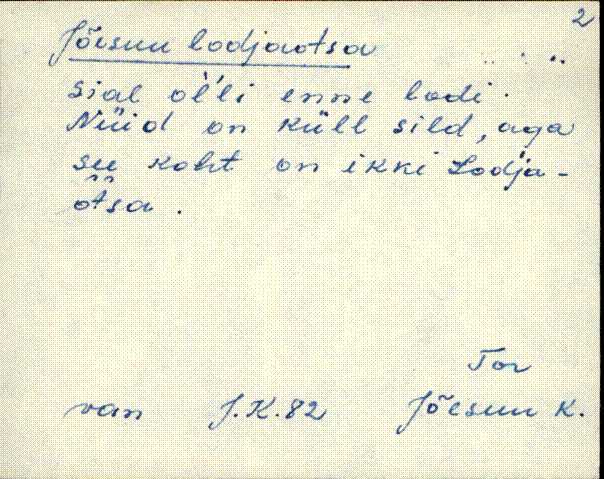 2
Jõesuu lodjaotsa
Sial ol'li enne lodi.
Nüid on küll sild, aga
see koht on ikki Lodja-
otsa.
Tor
van J.K. 82 Jõesuu k.